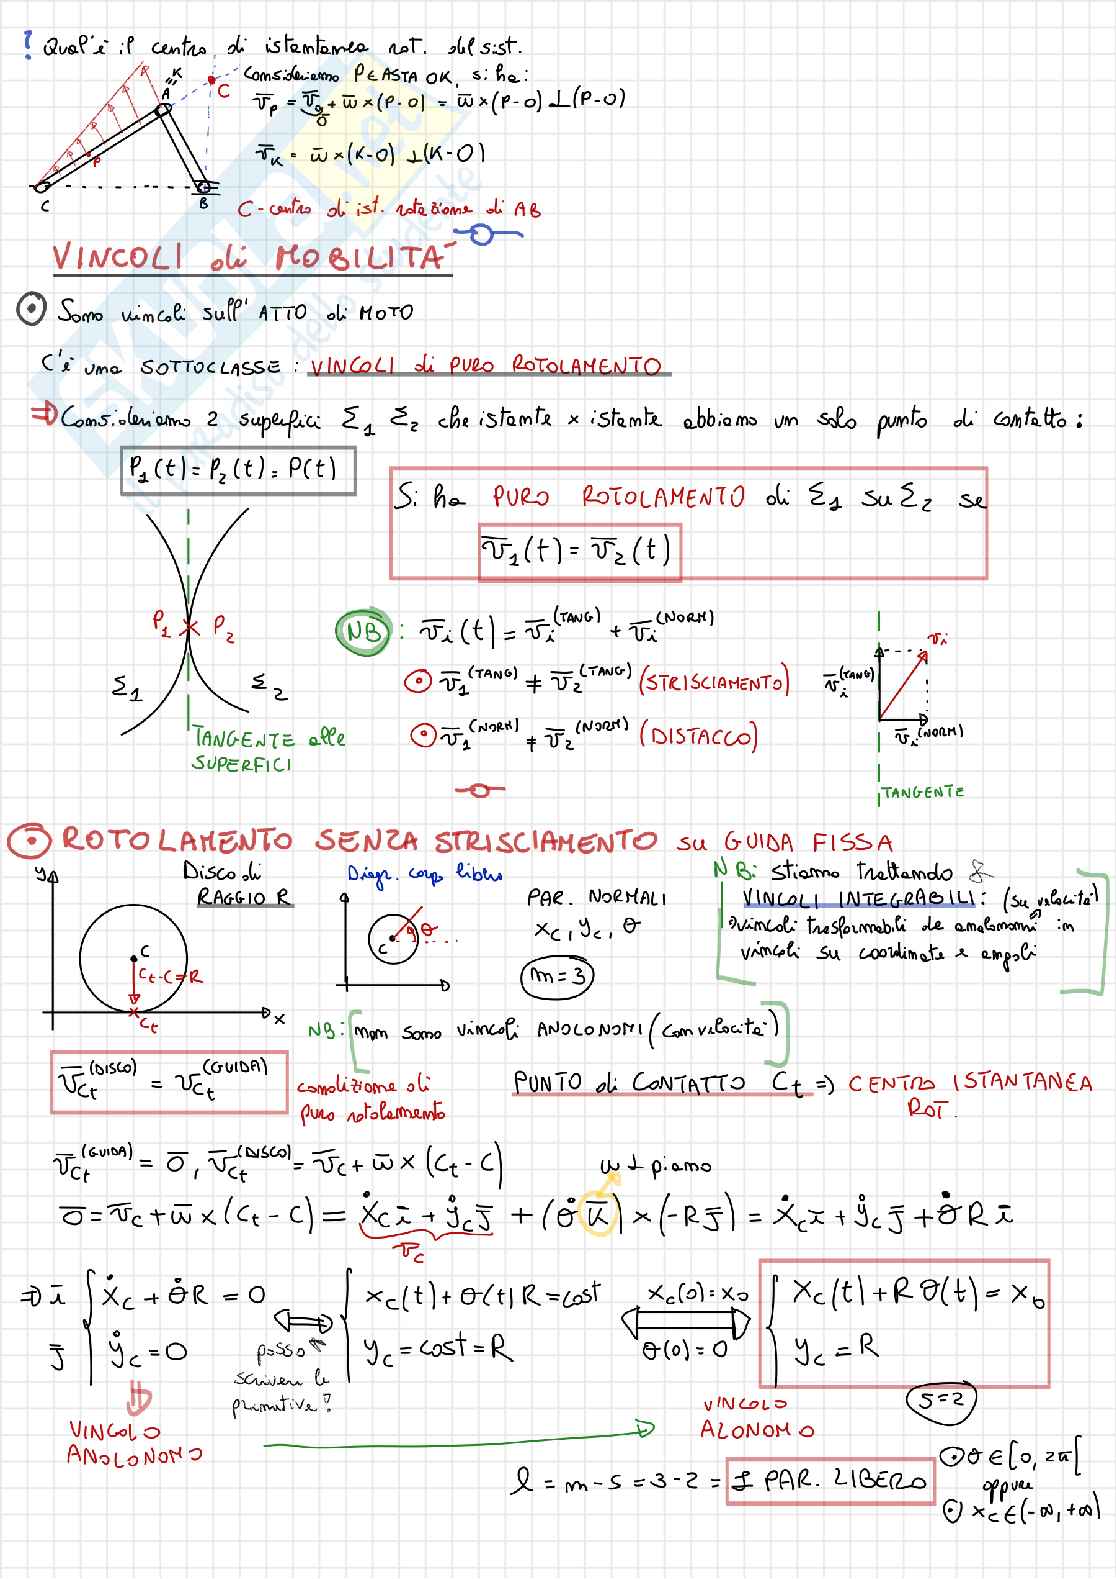 ! Qual'è il centro di istantanea rot. del sist.
Consideriamo P∈ASTA OK, si ha:
v̄_P = v̄_O + ω̄ × (P-O) = ω̄ × (P-O) ⊥ (P-O)
0
v̄_K = ω̄ × (K-O) ⊥ (K-O)
A = K
C
P
C
B
C-centro di ist. rotazione di AB
VINCOLI di MOBILITA'
⊙ Sono vincoli sull' ATTO di MOTO
C'è una SOTTOCLASSE: VINCOLI di PURO ROTOLAMENTO
⇒ Consideriamo 2 superfici Σ1 Σ2 che istante × istante abbiamo un solo punto di contatto:
P1(t) = P2(t) = P(t)
Si ha PURO ROTOLAMENTO di Σ1 su Σ2 se
v̄1(t) = v̄2(t)
P1 P2
Σ1 Σ2
TANGENTE alle
SUPERFICI
NB : v̄i(t) = v̄i^(TANG) + v̄i^(NORM)
⊙ v̄1^(TANG) ≠ v̄2^(TANG) (STRISCIAMENTO)
⊙ v̄1^(NORM) ≠ v̄2^(NORM) (DISTACCO)
vi
v̄i^(TANG)
v̄i^(NORM)
TANGENTE
⊙ ROTOLAMENTO SENZA STRISCIAMENTO su GUIDA FISSA
y
Disco di
RAGGIO R
C
Ct-C=R
Ct
x
Diagr. corpo libero
C θ
PAR. NORMALI
xC, yC, θ
m=3
NB: stiamo trattando
VINCOLI INTEGRABILI: (su velocità)
vincoli trasformabili da anolonomi in
vincoli su coordinate e angoli
NB: non sono vincoli ANOLONOMI (con velocità)
v̄Ct^(DISCO) = vCt^(GUIDA)
condizione di
puro rotolamento
PUNTO di CONTATTO Ct ⇒ CENTRO ISTANTANEA
ROT.
v̄Ct^(GUIDA) = 0̄, v̄Ct^(DISCO) = v̄C + ω̄ × (Ct - C)
ω ⊥ piano
0̄ = v̄C + ω̄ × (Ct - C) = ẋC ī + ẏC j̄ + (θ̇ k̄) × (-R j̄) = ẋC ī + ẏC j̄ + θ̇ R ī
v̄C
⇒ ī { ẋC + θ̇R = 0
j̄ ẏC = 0
posso
scrivere le
primitive?
{ xC(t) + θ(t)R = cost
yC = cost = R
xC(0) = x0
θ(0) = 0
{ xC(t) + Rθ(t) = x0
yC = R
S=2
VINCOLO
ANOLONOMO
VINCOLO
ALONOMO
l = m - s = 3 - 2 = 1 PAR. LIBERO
⊙ θ ∈ [0, 2π[
oppure
⊙ xC ∈ (-∞, +∞)